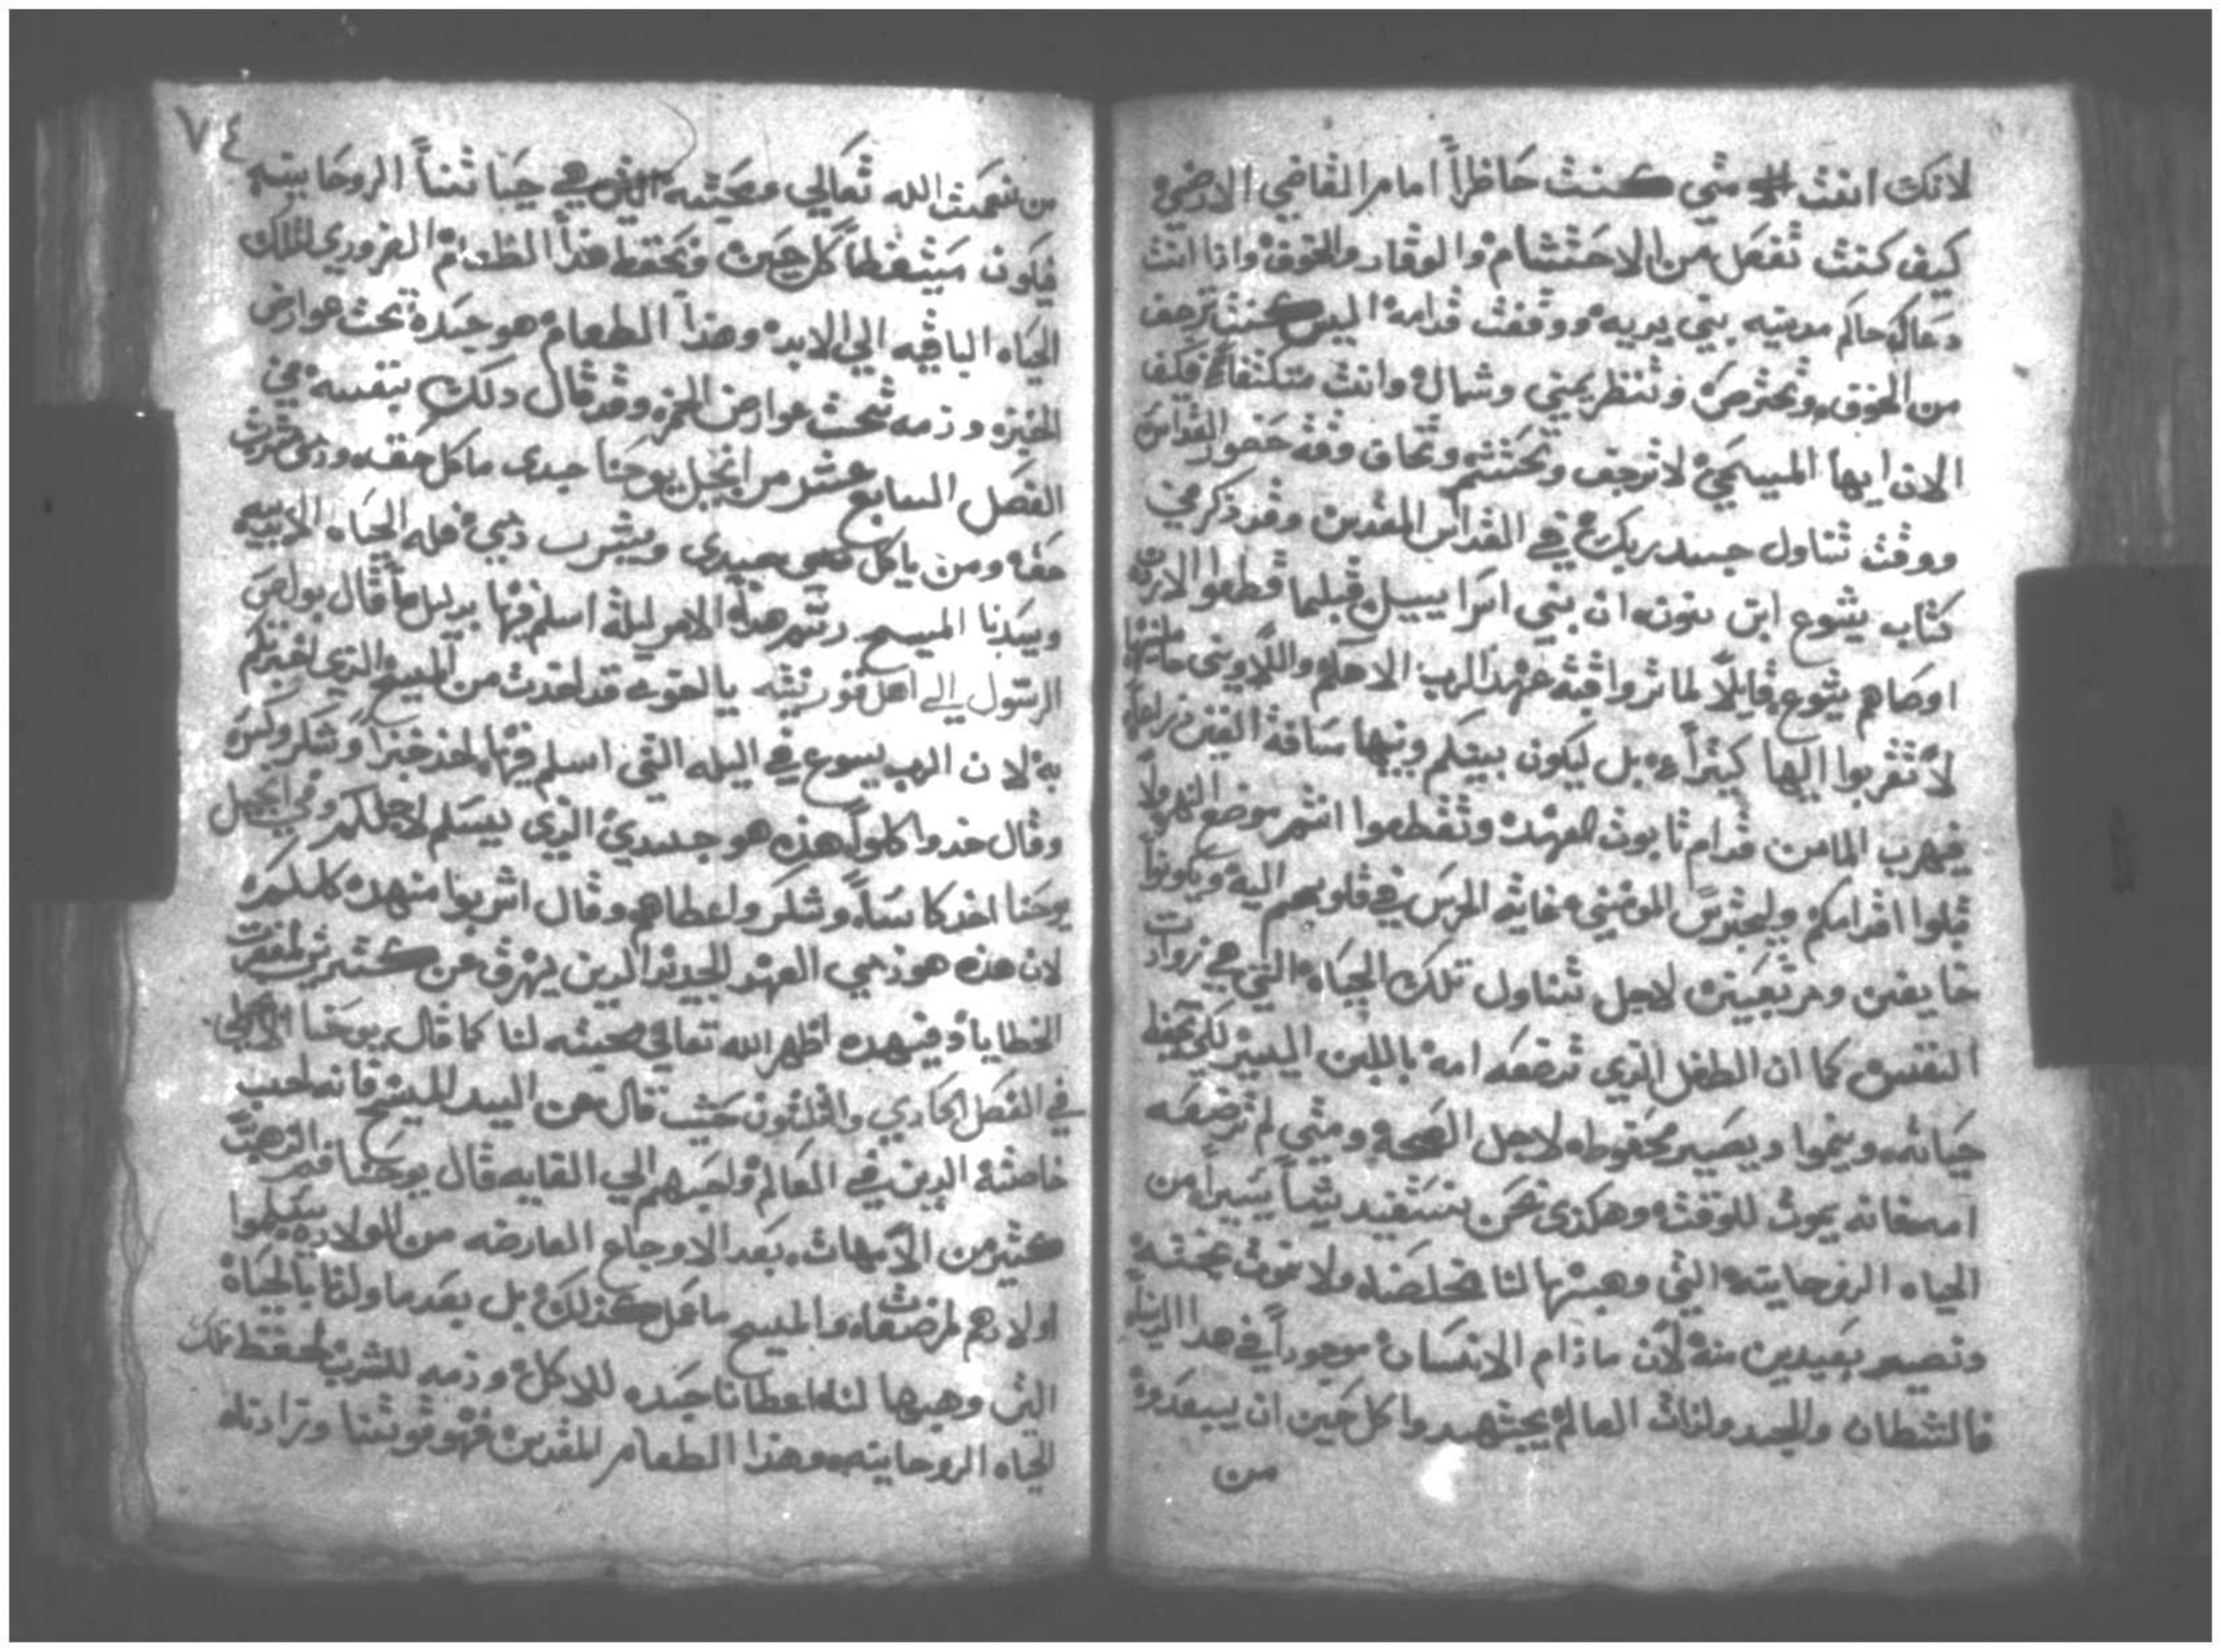 لانك انت متي كنت حاظراً امام القاضي الارضي
كيف كنت تفعل من الاحتشام والوقار والخوف واذا انت
دعاك حاكم مدينه بيني يديه ووقفت قدامه اليس كنت ترجف
من الخوف وتحترص وتنتظر يميني وشمال وانت متكتفاً فكيف
الان ايها المسيحي لا ترجف وتحتشم وتخاف وقت حضور القداس
ووقت تناول جسد ربك في القداس المقدس وقد ذكر في
كتاب يشوع ابن نون ان بني اسراييل قبلما قطعوا الاردن
اوصاهم يشوع قايلاً لما تروا قبة عهد الرب الاهكم واللاويني حاملينها
لا تقربوا اليها كيثراً بل ليكون بينكم وبينها مسافة الفين دراعاً
فيهرب الما من قدام تابوت العهد وتقطعوا انتم موضع النهر ولا
تبلوا اقدامكم وليحترس المومنين غاية الحرس في قلوبهم اليه ويكونوا
خايفين ومرتعبين لاجل تناول تلك الحياه التي هي زوادت
النفس كما ان الطفل الذي ترضعه امه باللبن اليسير لكي تحفظ
حياته وينموا ويصير محفوظه لاجل الصحه ومتي لم ترضعه
امه فانه يموت للوقت وهكذى نحن نستفيد شياً يسيراً من
الحياه الروحانيه التي وهبها لنا مخلصنا ولا نموت بخطيه
ونصير بعيدين منه لان ماذام الانسان موجوداً في هدا
فالشطان والجسد ولذات العالم يجتهدوا كل حين ان يبعدوه
من
٧٤
من نعمت الله تعالي ومحبته الذي هي حياتناً الروحانيه
فيكون متيقظاً كل حين ويحفظ هذا الطعام الضروري لتلك
الحياه الباقيه الي الابد وهذا الطعام هو جسده تحت عوارض
الخبز ودمه تحت عوارض الخمر وقد قال دلك بنفسه في
الفصل السابع عشر من انجيل يوحنا جسدى ماكل حقه ودمى مشرب
حقه ومن ياكل جسدي ويشرب دمي فله الحياه الابديه
وسيدنا المسيح رسم هذا الامر ليلة اسلم فيها بدليل ما قال بولص
الرسول الي اهل قورنثيه يا اخوه قد اخدت من المسيح الذي اخبرتكم
به لان الرب يسوع في اليله التي اسلم فيها اخذ خبزاً وشكر وكسر
وقال خدوا كلوا هذه هو جسدي الذي يسلم لاجلكم وفي انجيل
يوحنا اخد كاساً وشكر واعطاهم وقال اشربوا منهده كلكم
لان هذه هو دمي العهد الجديد الذين يهرق عن كثيرين لمغفرت
الخطايا وفيهده اظهر الله تعالي محبته لنا كما قال يوحنا
في الفصل الحادي والثلثون حيث قال عن السيد المسيح فانه احب
خاصته الدين في العالم واحبهم الي الغايه قال يوحنا فم الذهب
كثير من الامهات بعد الاوجاع العارضه من الولاده يسلموا
اولادهم لمرضعات والمسيح ما عمل كذلك بل بعد ما ولدنا بالحياه
التي وهبها لنا اعطانا جسده للاكل ودمه للشرب لحفظ تلك
الحياه الروحانيه وهذا الطعام المقدس فهو قوتنا وزادنا